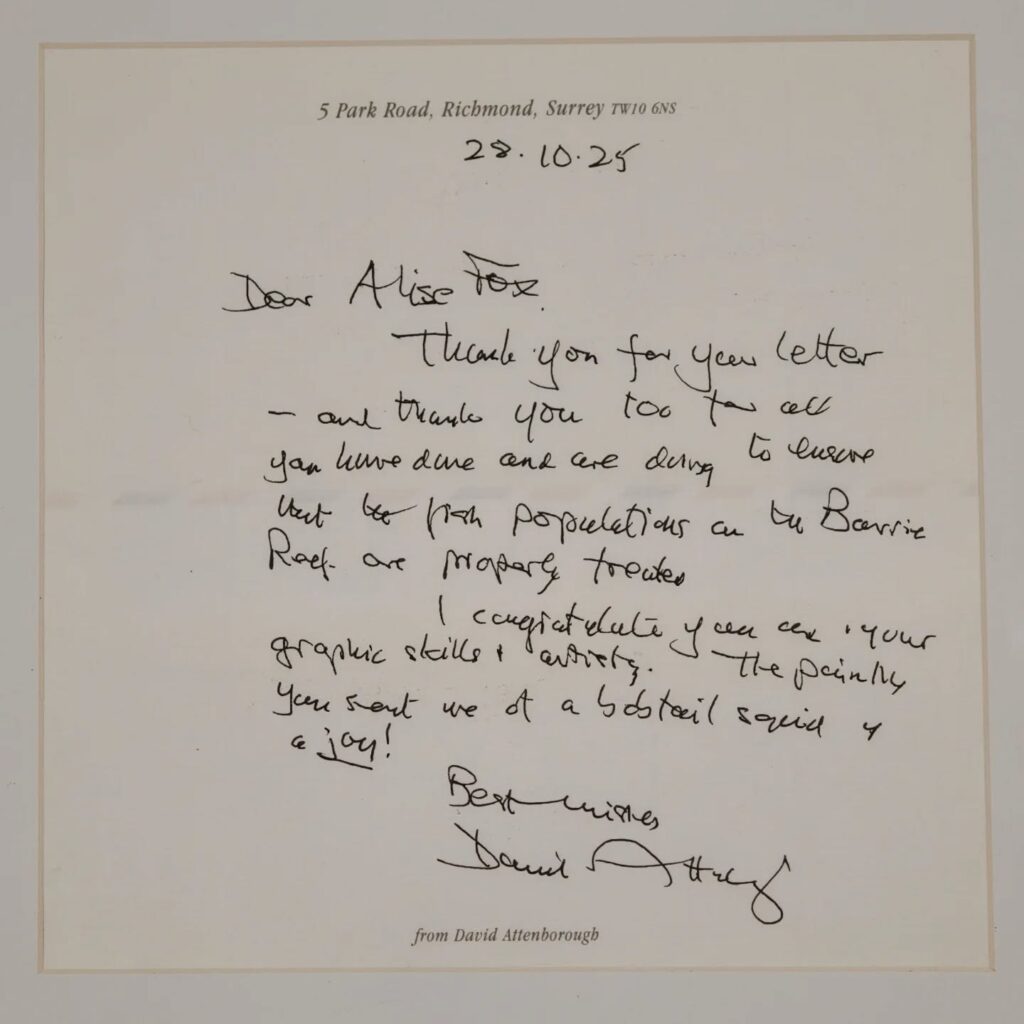 5 Park Road, Richmond, Surrey TW10 6NS
28.10.25
Dear Alise Fox.
Thank you for your letter
– and thank you too for all
you have done and are doing to ensure
that the fish populations on the Barrier
Reef are properly treated
I congratulate you on your
graphic skills & artistry. The painting
you sent me of a bobtail squid is
a joy!
Best wishes
David Attenborough
from David Attenborough